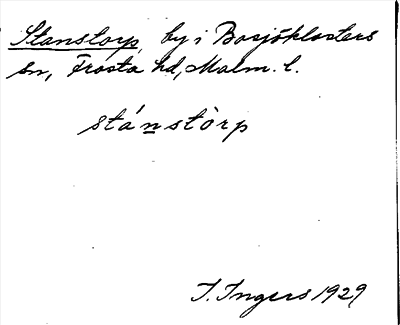 Stanstorp, by i Bosjöklosters
sn, Frosta hd, Malm. l.
stánstòrp
I. Ingers 1929